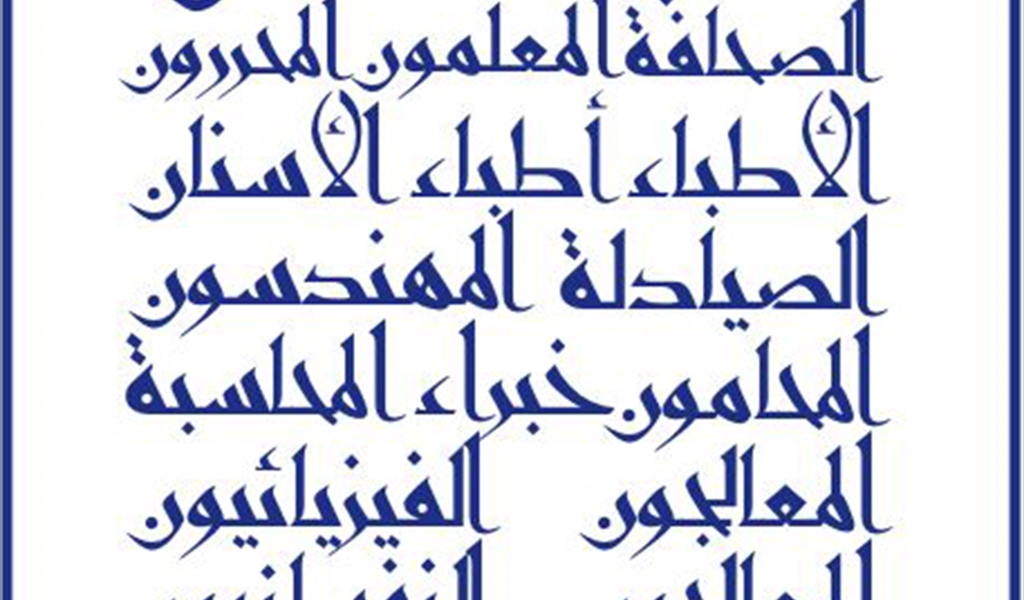 الصحافة المعلمون المحررون
الأطباء أطباء الأسنان
الصيادلة المهندسون
المحامون خبراء المحاسبة
المعالجون الفيزيائيون